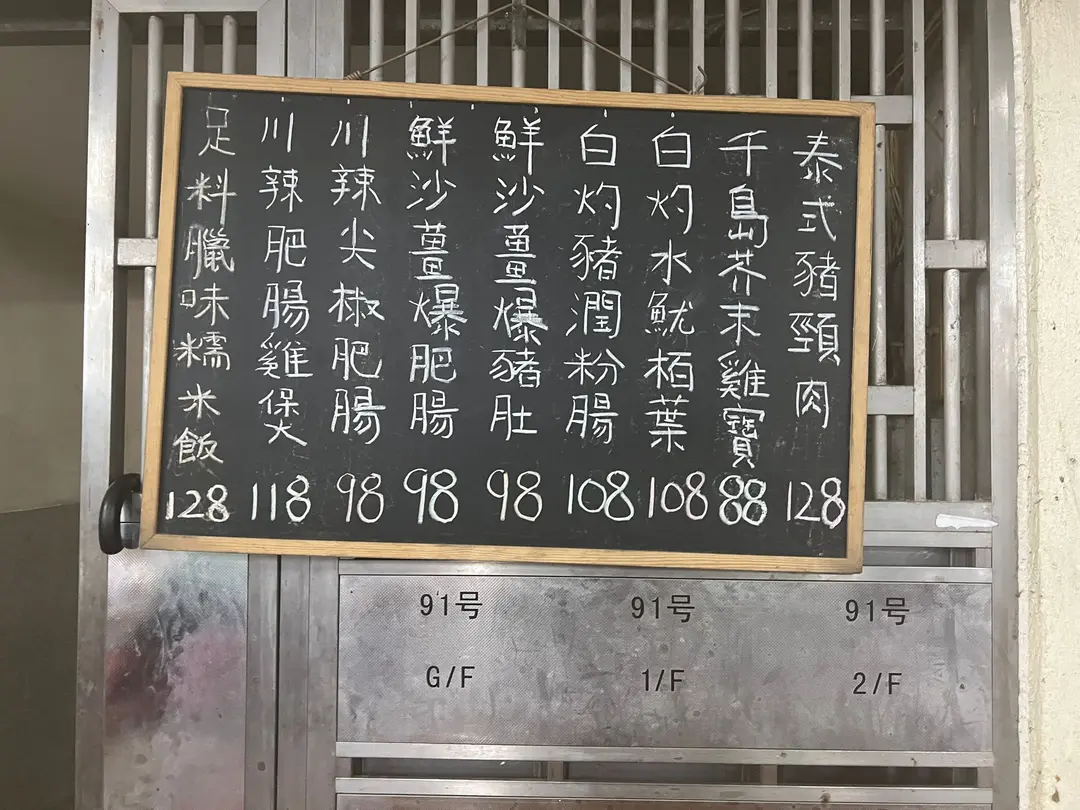 泰式豬頸肉 128
千島芥末雞寶 88
白灼水魷栢葉 108
白灼豬潤粉腸 108
鮮沙薑爆豬肚 98
鮮沙薑爆肥腸 98
川辣尖椒肥腸 98
川辣肥腸雞煲 118
足料臘味糯米飯 128
91号 91号 91号
G/F 1/F 2/F